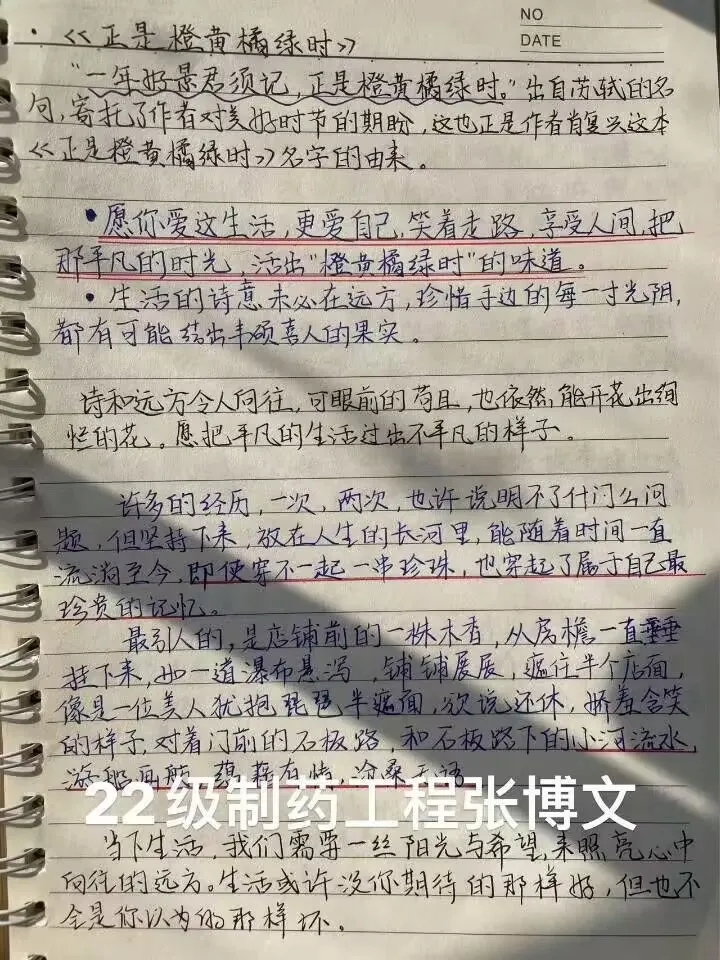 NO
DATE
·《正是橙黄橘绿时》
“一年好景君须记，正是橙黄橘绿时。”出自苏轼的名
句，寄托了作者对美好时节的期盼，这也正是作者肖复兴这本
《正是橙黄橘绿时》名字的由来。
·愿你爱这生活，更爱自己，笑着走路，享受人间，把
那平凡的时光，活出“橙黄橘绿时”的味道。
·生活的诗意未必在远方，珍惜手边的每一寸光阴，
都有可能结出丰硕喜人的果实。
诗和远方令人向往，可眼前的苟且，也依然能开花出绚
烂的花。愿把平凡的生活过出不平凡的样子。
许多的经历，一次，两次，也许说明不了什门么问
题，但坚持下来，放在人生的长河里，能随着时间一直
流淌至今，即使穿不一起一串珍珠，也穿起了属于自己最
珍贵的记忆。
最引人的，是店铺前的一株木香，从房檐一直垂垂
挂下来，如一道瀑布悬泻，铺铺展展，遮住半个店面，
像是一位美人犹抱琵琶半遮面，欲说还休，娇羞含笑
的样子，对着门前的石板路，和石板路下的小河流水，
游船画舫，蕴藉有情，沧桑无语
22级制药工程张博文
当下生活，我们需要一丝阳光与希望，来照亮心中
向往的远方。生活或许没你期待的那样好，但也不
会是你以为的那样坏。